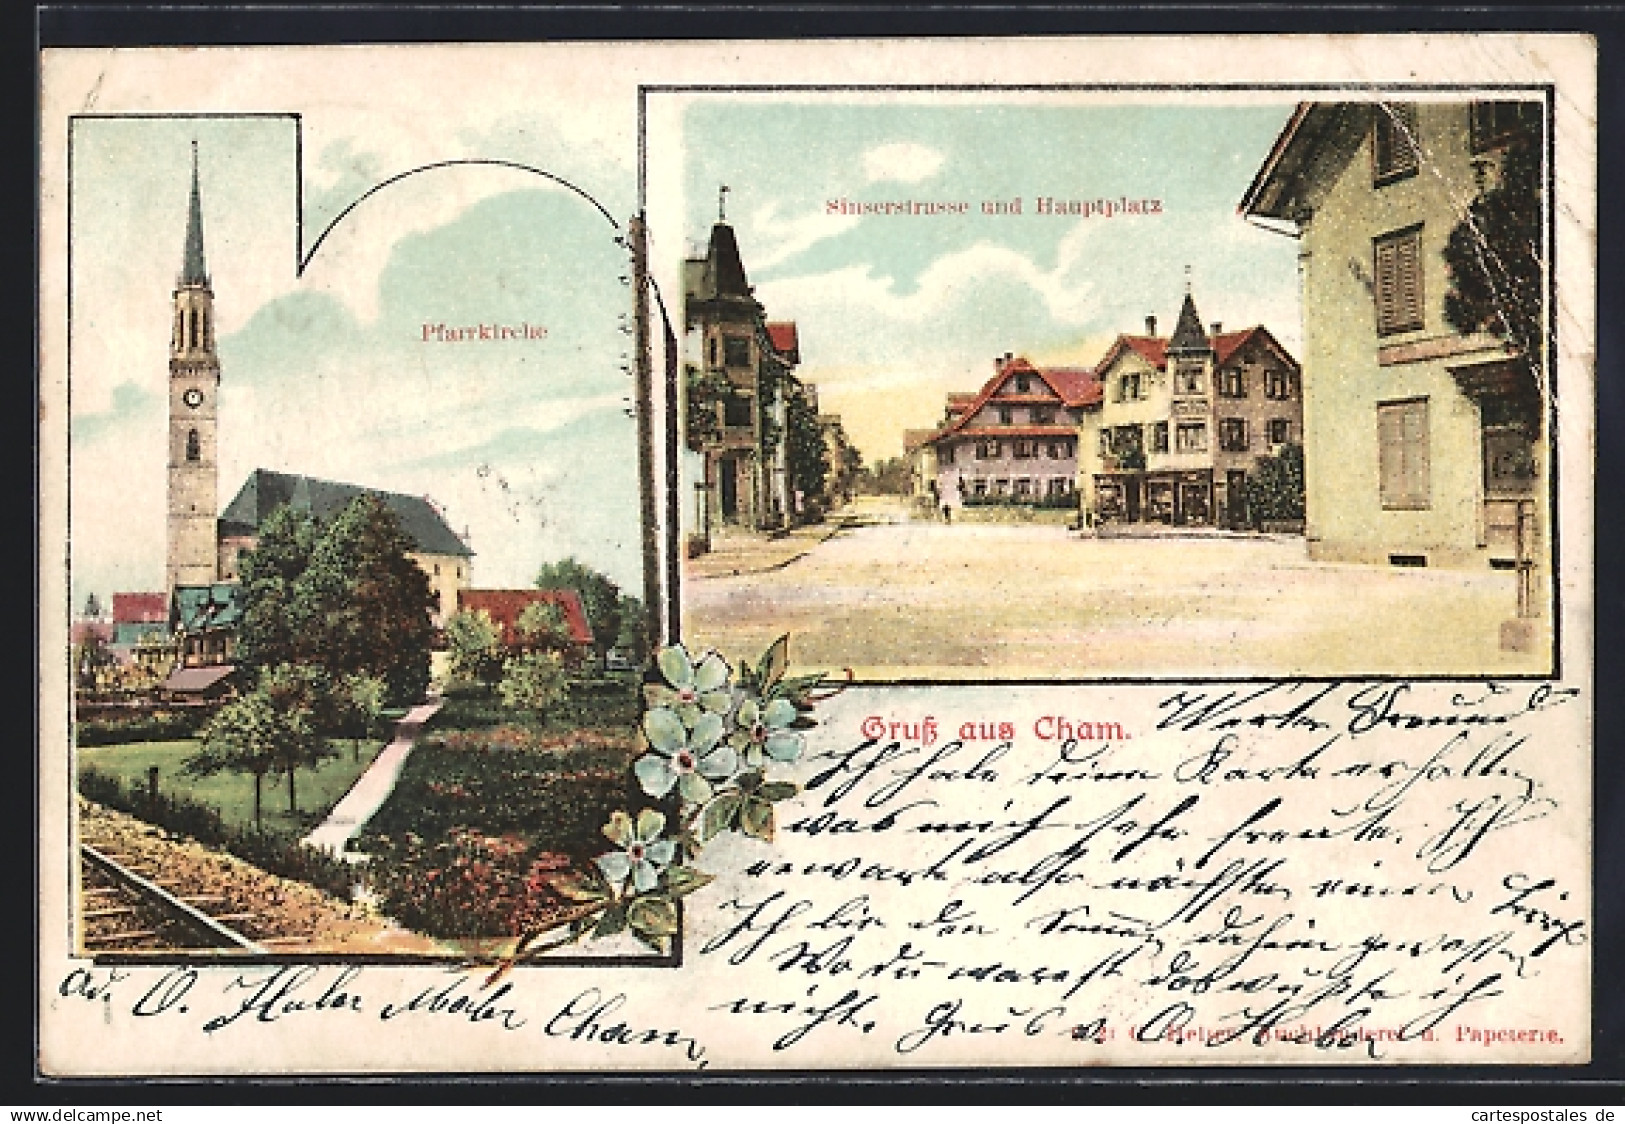 Pfarrkirche
Sinserstrasse und Hauptplatz
Gruß aus Cham.
Werter Freund
Ich habe deine Karte erhalten
was mich sehr freute. Ich
erwarte also nächsten einen
Ich bin den Sommer daheim gewessen
Wo du warest das wußte ich
nicht. Gruss O. Huber
Buchbinderei u. Papeterie.
O. Huber Maler Cham
cartespostales de